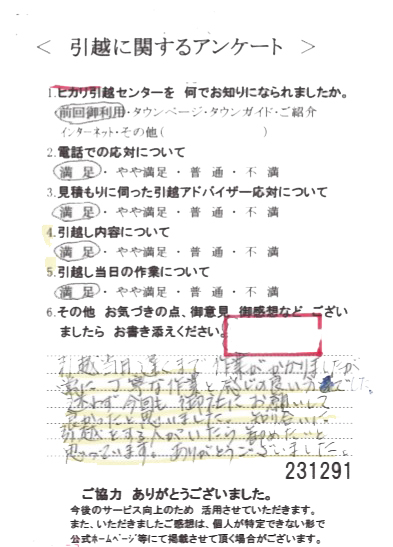 ＜ 引越に関するアンケート ＞
1.ヒカリ引越センターを 何でお知りになられましたか。
前回御利用・タウンページ・タウンガイド・ご紹介
インターネット・その他(　　　　　)
2.電話での応対について
満 足・ やや満足 ・ 普 通・ 不 満
3.見積もりに伺った引越アドバイザー応対について
満 足・ やや満足 ・ 普 通・ 不 満
4.引越し内容について
満 足・ やや満足 ・ 普 通・ 不 満
5.引越し当日の作業について
満 足・ やや満足 ・ 普 通・ 不 満
6.その他 お気づきの点、御意見 御感想など ござい
ましたら お書き添えください。
引越当日遅くまで 作業がかかりましたが
常に 丁寧な作業と 感じの良い方でした。
迷わず 今回も 御社にお願いして
良かったと思いました。知り合いに
引越をする人がいたら 薦めたいと
思っています。ありがとうございました。
231291
ご協力 ありがとうございました。
今後のサービス向上のため 活用させていただきます。
また、いただきましたご感想は、個人が特定できない形で
公式ホームページ等にて掲載させて頂く場合がございます。